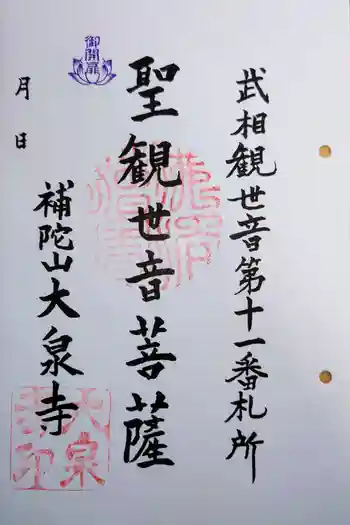 武相観世音第十一番札所
聖観世音菩薩
御開扉
補陀山大泉寺
大泉
月日